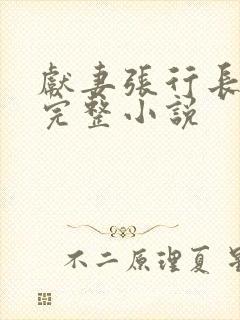 獻妻張行長
完整小説
不二原理夏